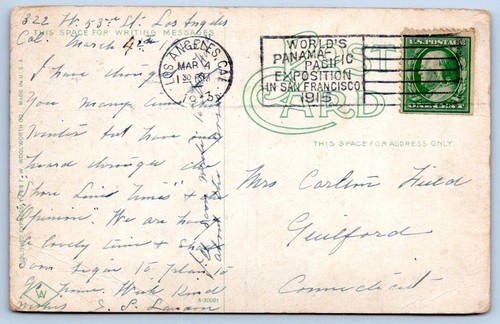 322 W. 53rd St. Los Angeles
Cal. March 4th
THIS SPACE FOR WRITING MESSAGES
I have thought
you many times
Winter but have only
heard through the
Shore Line Times" & the
Opinion". We are having
a lovely time & shall
soon begin to plan to
go home. With kind
wishes
LOS ANGELES, CAL.
MAR 4
1 30 PM
1915
WORLD'S
PANAMA-PACIFIC
EXPOSITION
IN SAN FRANCISCO
1915
POST
CARD
U.S. POSTAGE
THIS SPACE FOR ADDRESS ONLY
Mrs Carlton Field
Guilford
Connecticut
F. W. WOOLWORTH CO.
MADE IN U.S.A.